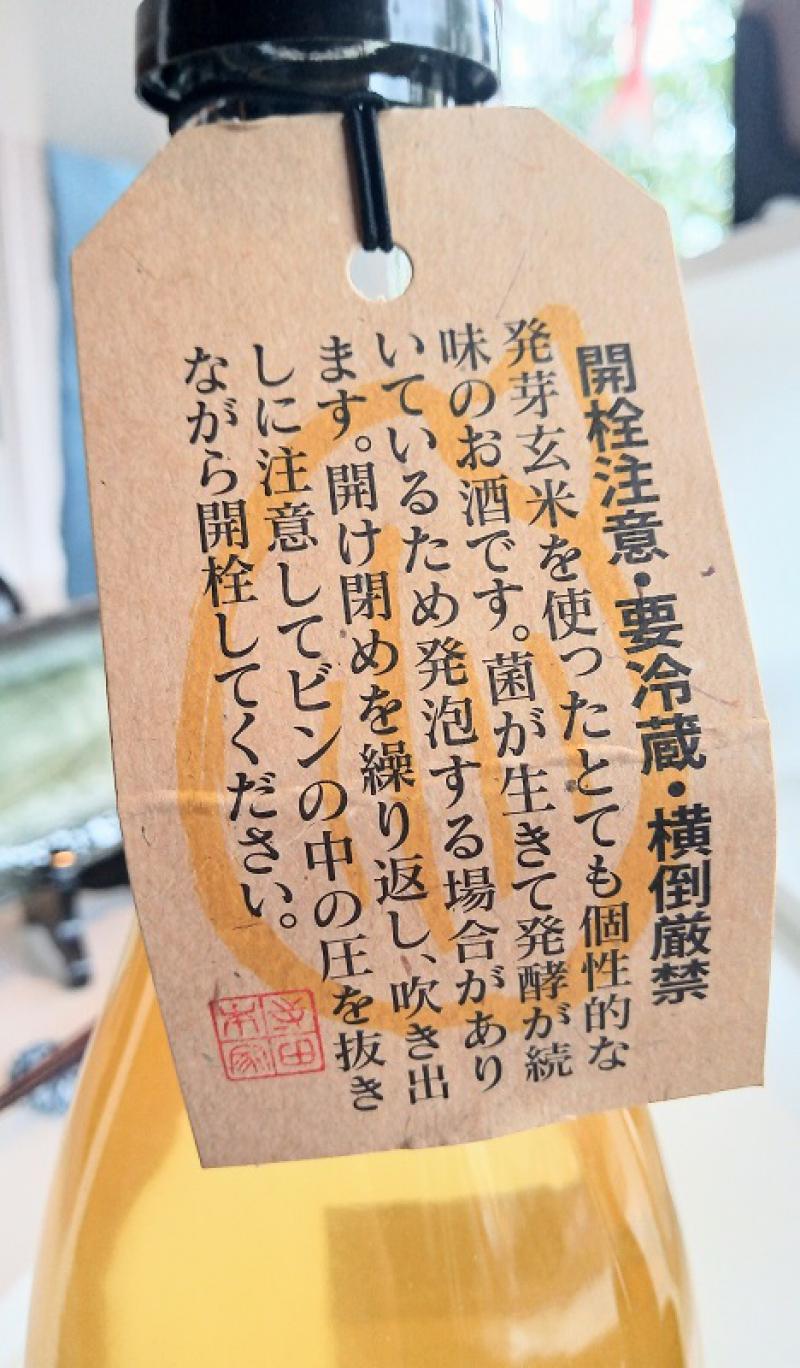 開栓注意・要冷蔵・横倒厳禁
発芽玄米を使ったとても個性的な
味のお酒です。菌が生きて発酵が続
いているため発泡する場合があり
ます。開け閉めを繰り返し、吹き出
しに注意してビンの中の圧を抜き
ながら開栓してください。
寺田
本家